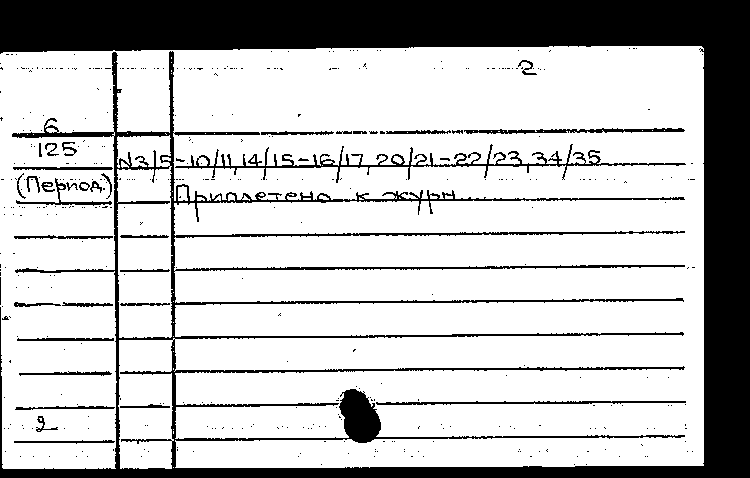 2
6
125 N3/5-10/11,14/15-16/17,20/21-22/23,34/35
(Период.)
Приплетено к журн.
2